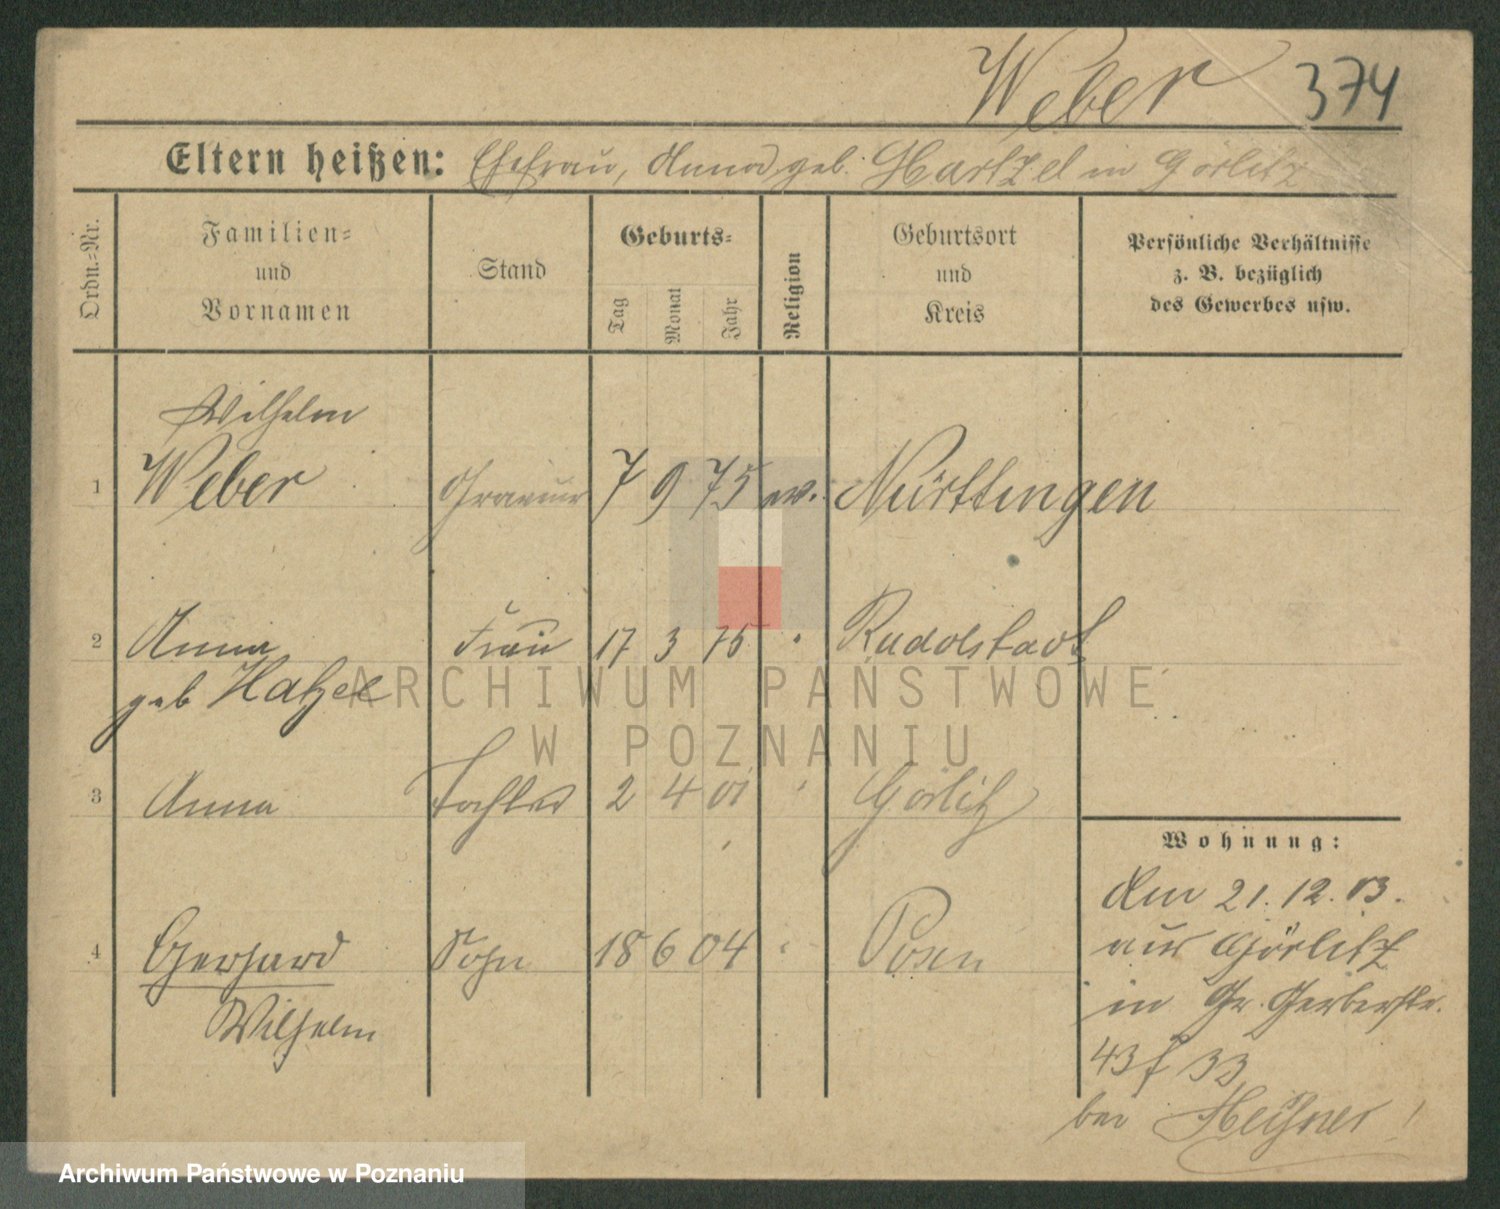 Weber 374
Eltern heißen: Ehefrau, Anna, geb. Hartzel in Görlitz
Ordn.-Nr.
Familien-
und
Vornamen
Stand
Geburts-
Tag
Monat
Jahr
Religion
Geburtsort
und
Kreis
Persönliche Verhältnisse
z. B. bezüglich
des Gewerbes usw.
Wilhelm
1 Weber Graveur 7 9 75 ev. Nürttingen
2 Anna Frau 17 3 76 " Rudolstadt
geb Hatzel
ARCHIWUM PAŃSTWOWE
W POZNANIU
3 Anna Tochter 2 4 01 " Görlitz
4 Gerhard Sohn 18 6 04 " Posen
Wilhelm
Wohnung:
Am 21.12.03.
aus Görlitz
in Gr. Gerberstr.
43
bei
Archiwum Państwowe w Poznaniu